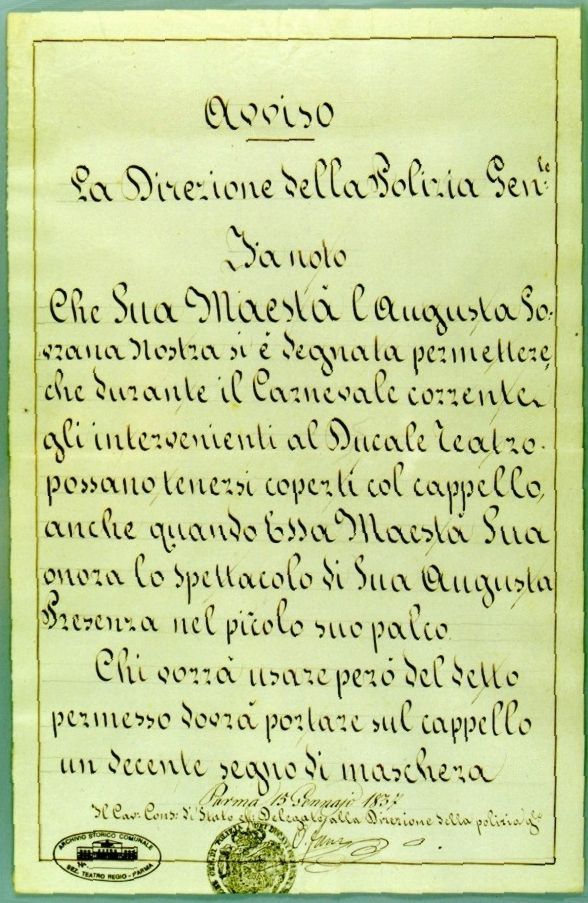 Avviso
La Direzione della Polizia Gen.le
Fa noto
Che Sua Maestà l'Augusta So-
vrana Nostra si è degnata permettere,
che durante il Carnevale corrente
gli intervenienti al Ducale Teatro
possano tenersi coperti col cappello,
anche quando Essa Maestà Sua
onora lo spettacolo di Sua Augusta
Presenza nel piccolo suo palco.
Chi vorrà usare però del detto
permesso dovrà portare sul cappello
un decente segno di maschera
Parma 15 Gennajo 1837
Il Cav. Cons. di Stato Delegato alla Direzione della polizia gle
ARCHIVIO STORICO COMUNALE
SEZ. TEATRO REGIO - PARMA